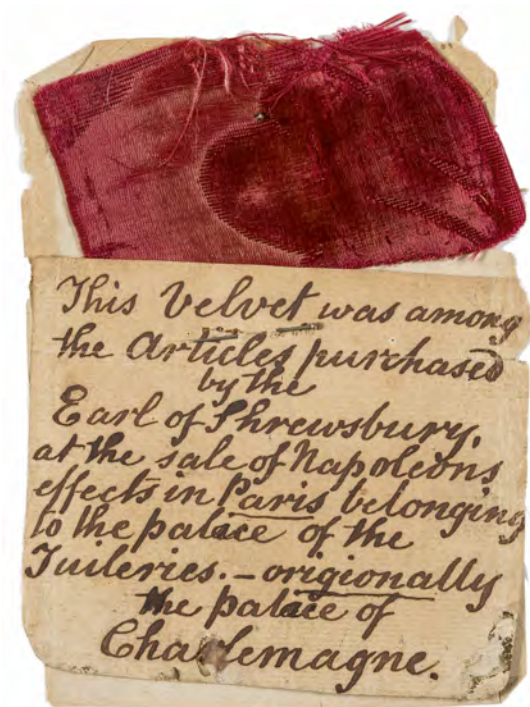 This Velvet was among
the Articles purchased
by the
Earl of Shrewsbury,
at the sale of Napoleons
effects in Paris belonging
to the palace of the
Tuileries. – origionally
the palace of
Charlemagne.